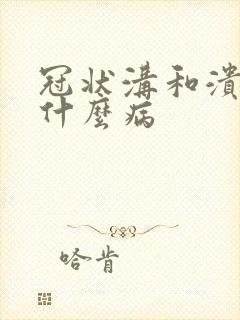 冠状溝和潰
什麼病
哈肯